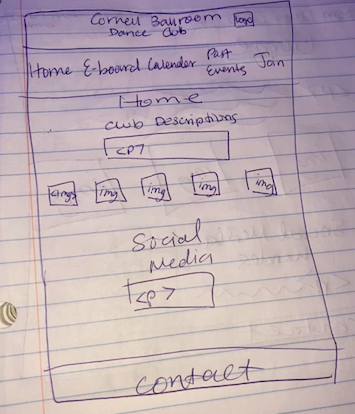 Cornell Ballroom logo
Dance Club
Home E-board Calender Past Events Join
Home
Club Descriptions
<P>
<img> img img img img
Social
Media
<P>
contact